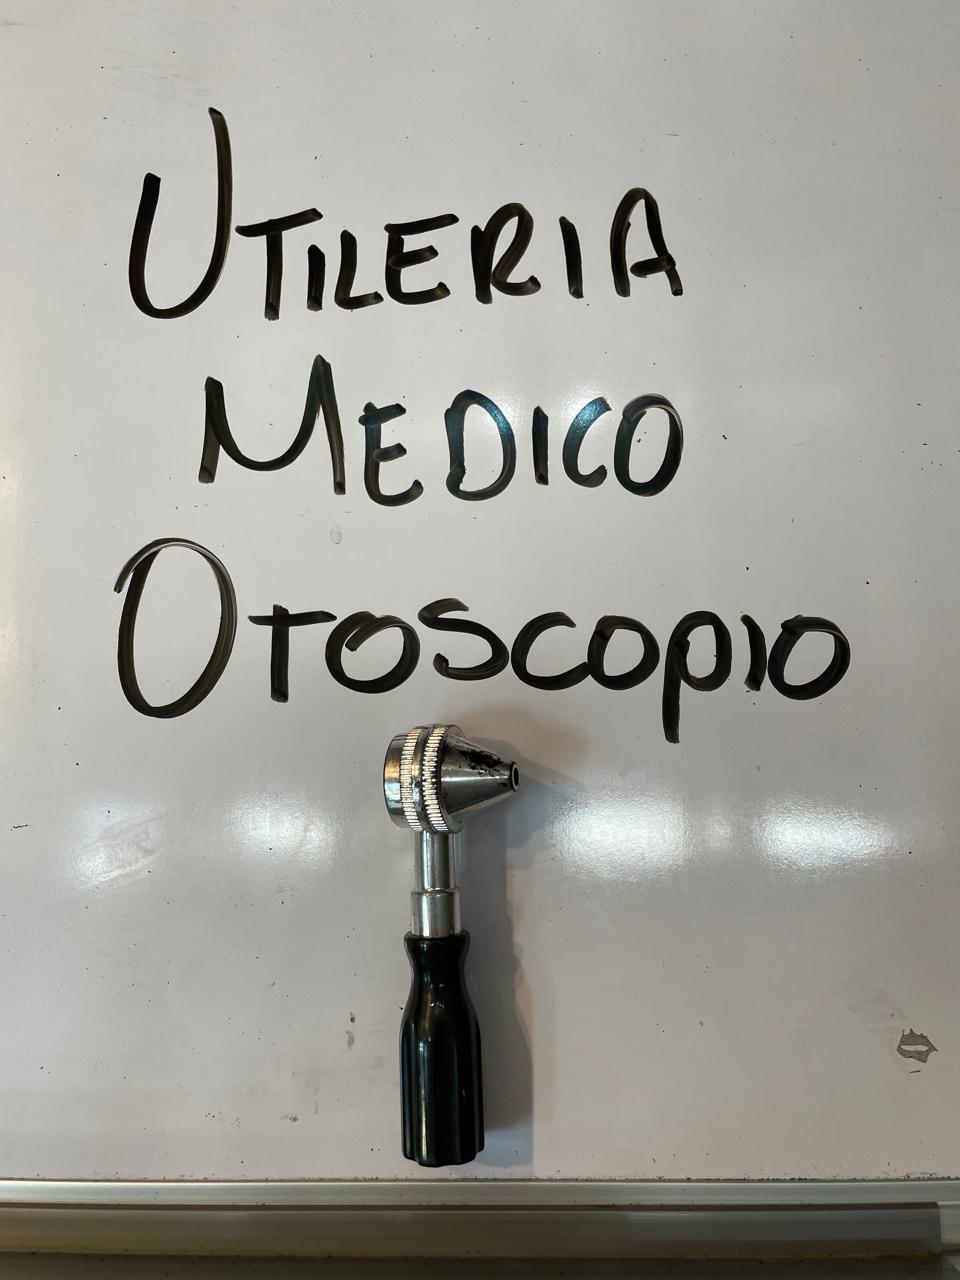 UTILERIA
MEDICO
OTOSCOPIO